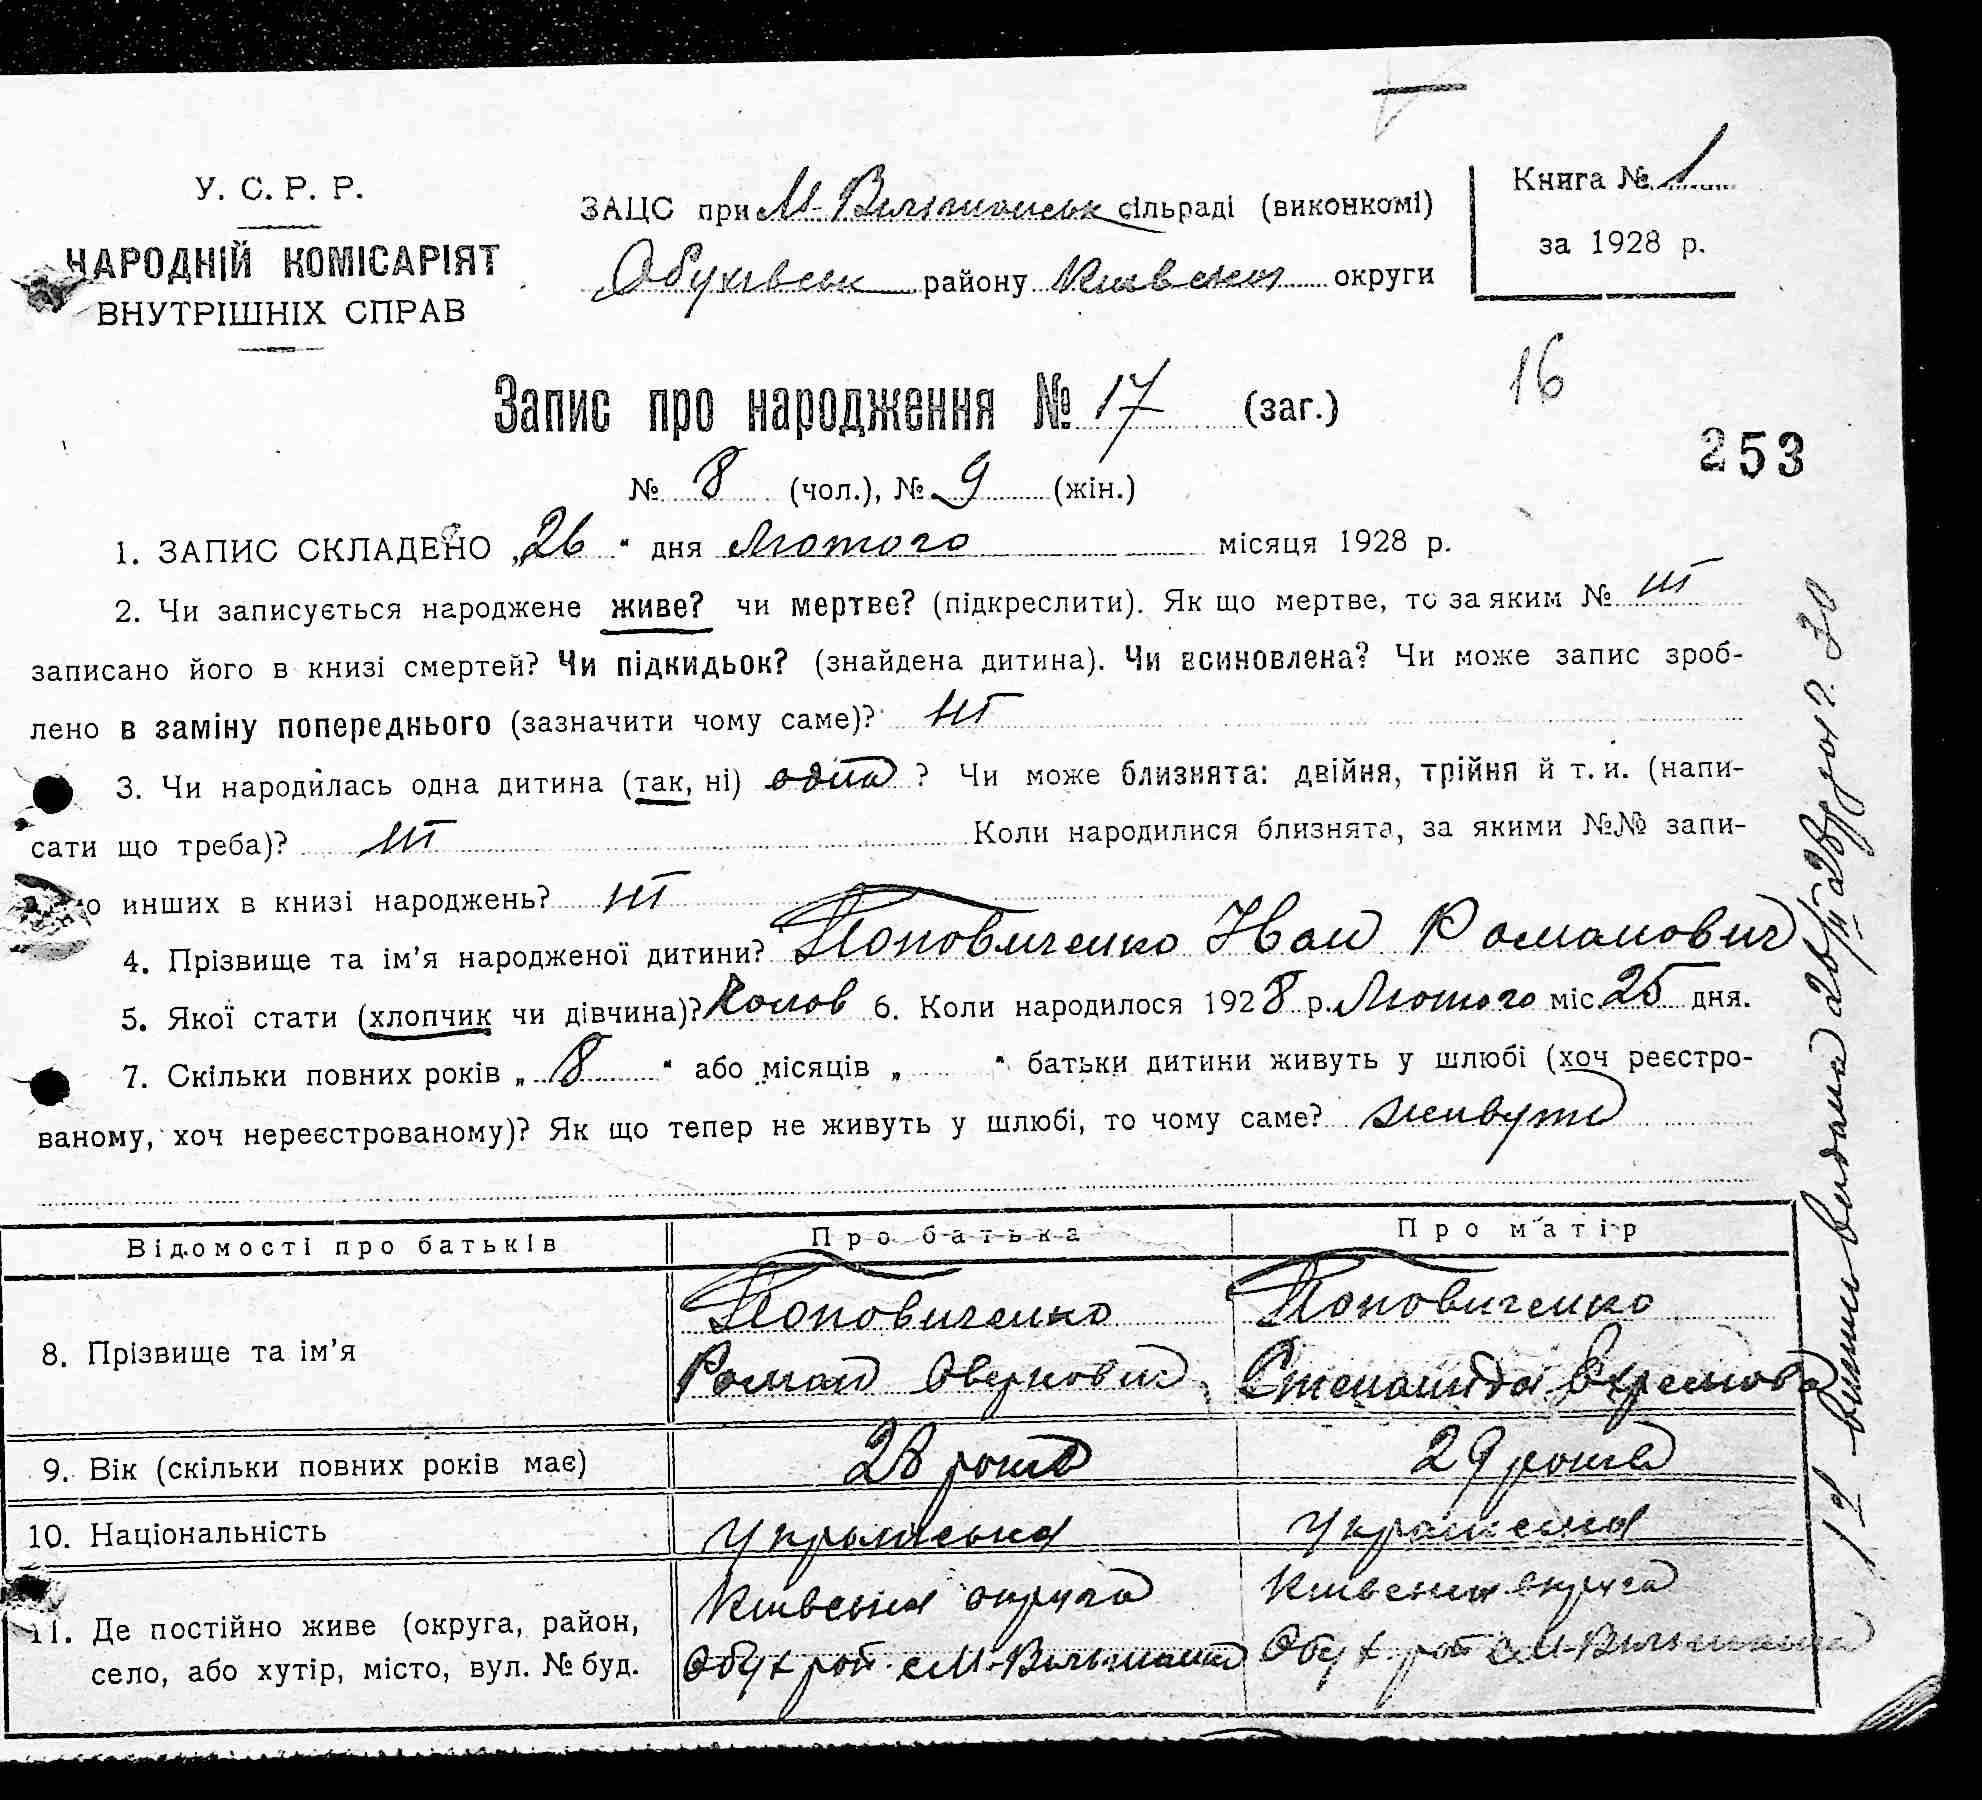 У. С. Р. Р.
НАРОДНІЙ КОМІСАРІЯТ
ВНУТРІШНІХ СПРАВ
ЗАЦС при М-Вільшанськ сільраді (виконкомі)
Обухівськ району Київської округи
Книга № 1
за 1928 р.
Запис про народження № 17 (заг.)
16
253
№ 8 (чол.), № 9 (жін.)
1. ЗАПИС СКЛАДЕНО „26“ дня Лютого місяця 1928 р.
2. Чи записується народжене живе? чи мертве? (підкреслити). Як що мертве, то за яким № ні
записано його в книзі смертей? Чи підкидьок? (знайдена дитина). Чи всиновлена? Чи може запис зроб-
лено в заміну попереднього (зазначити чому саме)? ні
3. Чи народилась одна дитина (так, ні) одна ? Чи може близнята: двійня, трійня й т. и. (напи-
сати що треба)? ні Коли народилися близнята, за якими №№ запи-
о инших в книзі народжень? ні
4. Прізвище та ім’я народженої дитини? Поповиченко Іван Романович
5. Якої стати (хлопчик чи дівчина)? 6. Коли народилося 1928 р. Лютого міс. 25 дня.
7. Скільки повних років „ 8 “ або місяців „ “ батьки дитини живуть у шлюбі (хоч реєстро-
ваному, хоч нереєстрованому)? Як що тепер не живуть у шлюбі, то чому саме? живуть
Відомості про батьків Про батька Про матір
8. Прізвище та ім’я
Поповиченко Поповиченко
Роман Оверкович Степанида Охремова
9. Вік (скільки повних років має) 28 років 29 років
10. Національність Українська Українська
11. Де постійно живе (округа, район,
село, або хутір, місто, вул. № буд.
Київська округа Київська округа
Обух рай. с М-Вільшанка Обух рай с М-Вільшанка
видана